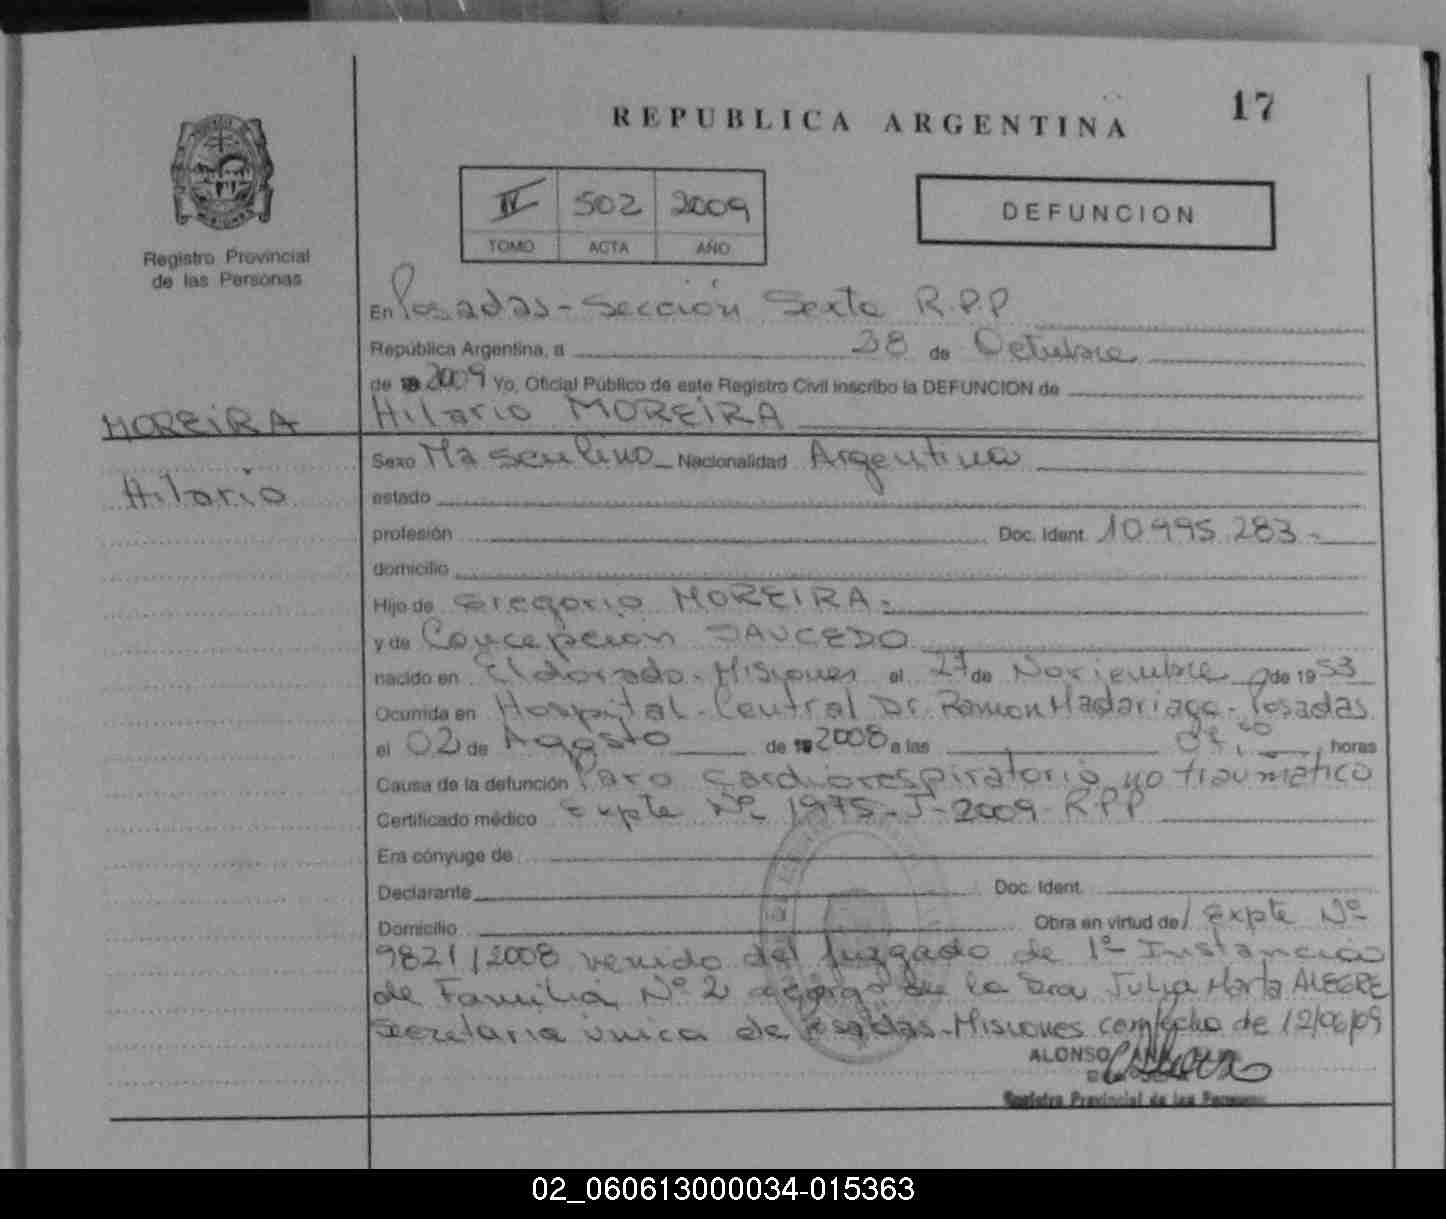 REPUBLICA ARGENTINA
17
IV 502 2009
TOMO ACTA AÑO
DEFUNCION
Registro Provincial
de las Personas
En Posadas - Sección Sexta R.P.P
República Argentina, a 28 de Octubre
de 2009 Yo, Oficial Público de este Registro Civil inscribo la DEFUNCION de
MOREIRA
Hilario MOREIRA
Hilario
Sexo Masculino Nacionalidad Argentina
estado
profesión Doc. Ident. 10.995.283.-
domicilio
Hijo de Gregorio MOREIRA.
y de Concepción SAUCEDO
nacido en Eldorado - Misiones el 27 de Noviembre de 1953
Ocurrida en Hospital Central Dr. Ramon Madariaga - Posadas
el 02 de Agosto de 2008 a las horas
Causa de la defunción Paro cardiorespiratorio no traumático
Certificado médico Expte Nº 1975-J-2009-R.P.P
Era cónyuge de
Declarante Doc. Ident.
Domicilio Obra en virtud de/ Expte Nº
9821/2008 venido del Juzgado de 1º Instancia
de Familia Nº 2 a cargo de la Dra Julia Marta ALEGRE
Secretaria única de Posadas - Misiones con fecha de 12/06/09
ALONSO
Registro Provincial de las Personas
02_060613000034-015363